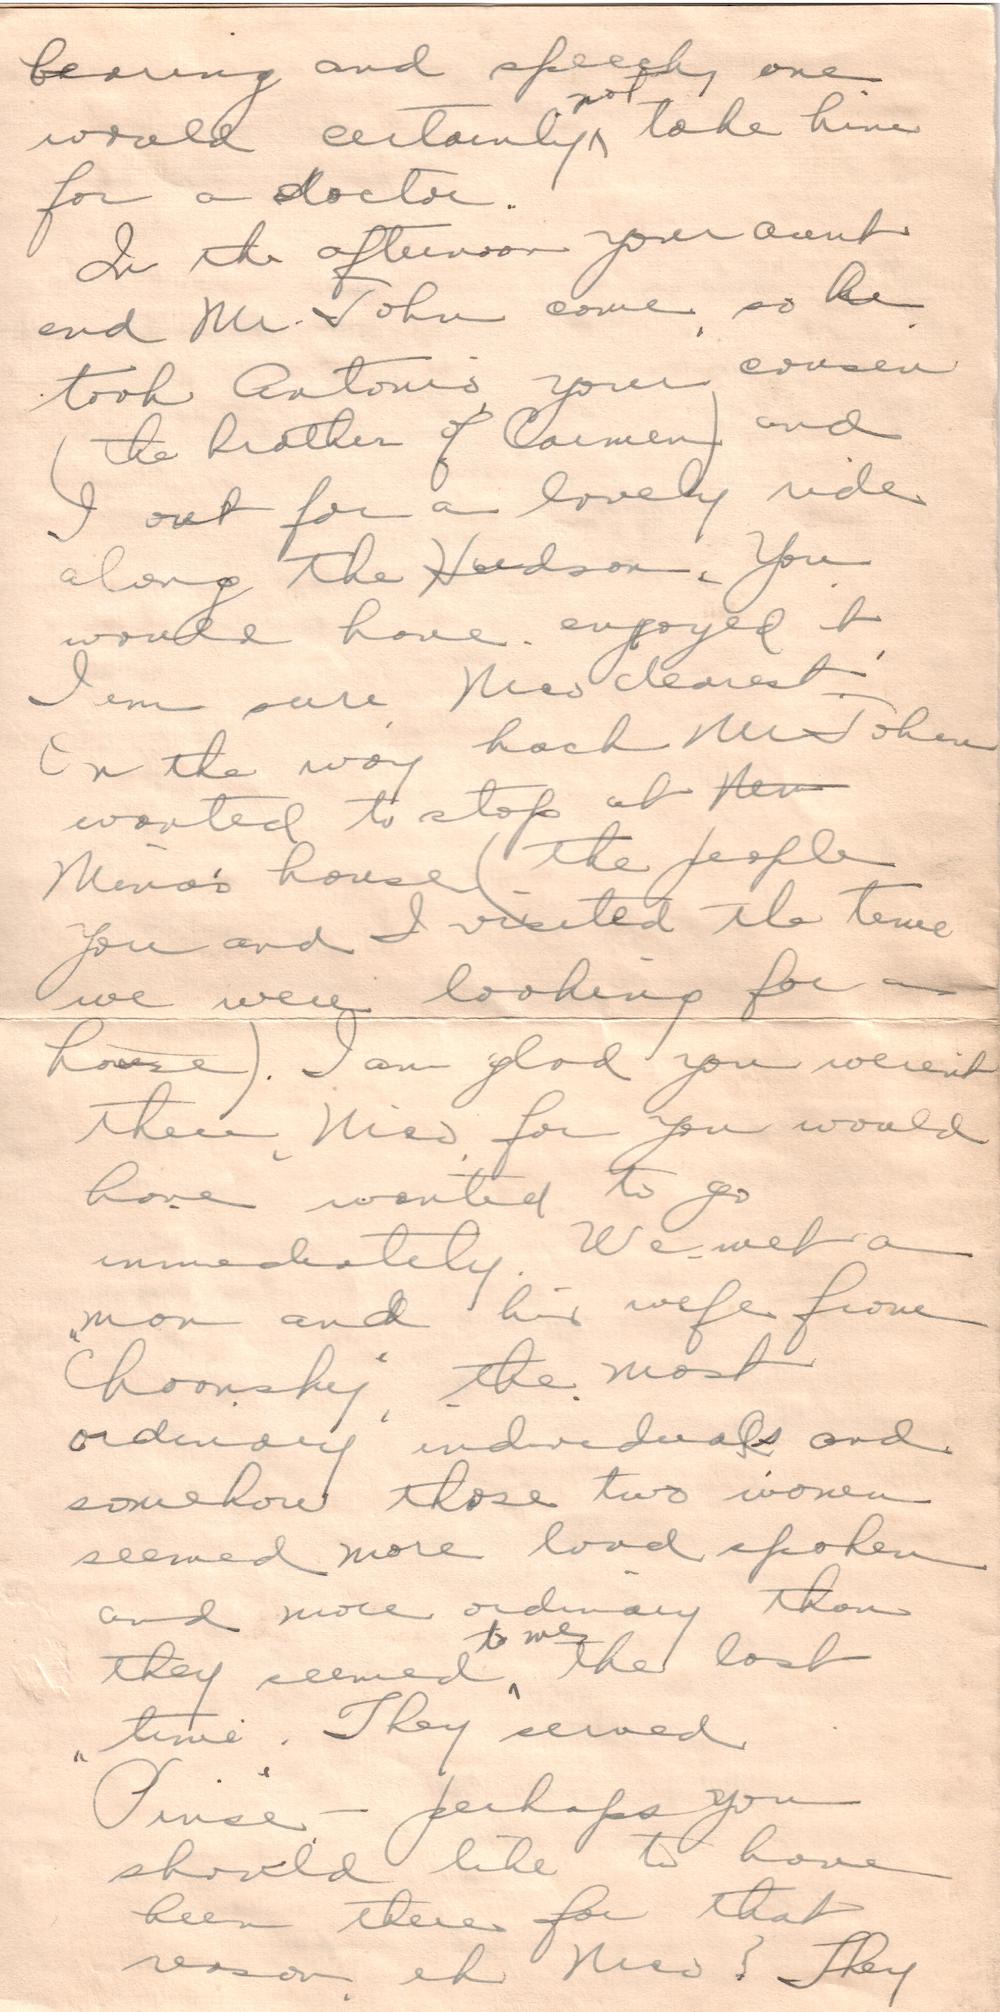 bearing and speech, one
would certainly not take him
for a doctor.
In the afternoon your aunt
and Mr. John come, so he
took Antonio, your cousin
(the brother of Carmen) and
I out for a lovely ride
along the Hudson. You
would have enjoyed it,
I am sure, Nico dearest.
On the way back Mr. John
wanted to stop at
Mino's house (the people
you and I visited the time
we were looking for a
house). I am glad you weren't
there, Nico, for you would
have wanted to go
immediately. We met a
man and his wife from
"Choonsky", the most
ordinary individuals and
somehow those two women
seemed more loud spoken
and more ordinary than
they seemed to me the last
time. They served
"Pinse" - perhaps you
should like to have
been there for that
reason, eh Nico? They